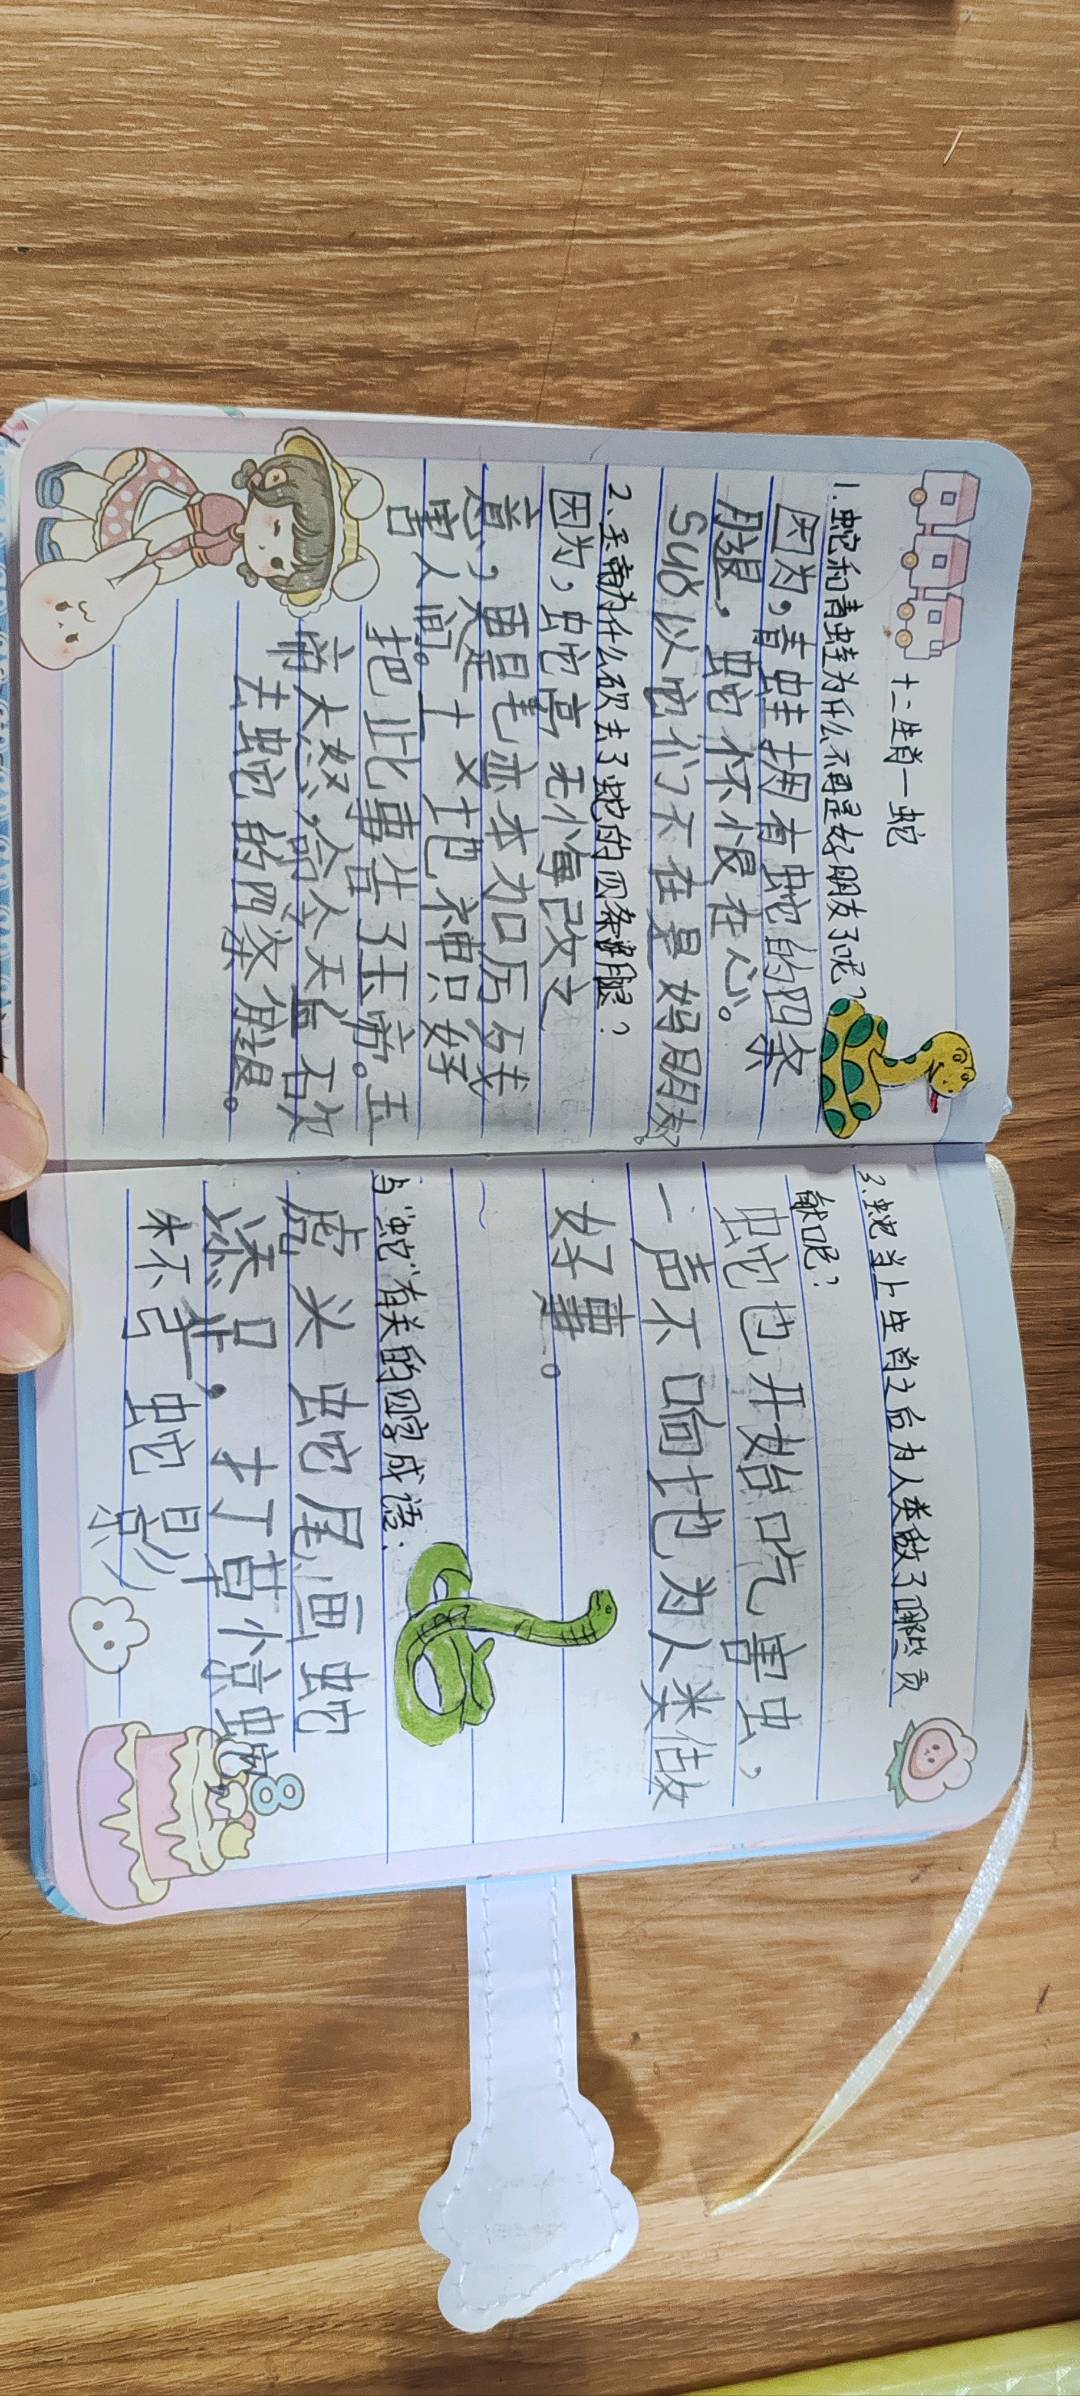 十二生肖一蛇
1.蛇和青蛙为什么不再是好朋友了呢?
因为,青蛙拥有蛇的四条
腿,蛇怀恨在心。
suo以它们不在是好朋友。
2.玉帝为什么砍去了蛇的四条腿?
因为,蛇高无小悔改之
意,更是毛亦本力口厉残
害人间。土又土地神只好
把此事告了玉帝。玉
帝大怒,命令天兵砍
去蛇的四条腿。
3.蛇当上生肖之后为人类做了哪些贡
献呢?
蛇也开始吃害虫,
一声不响地为人类做
好事。
与"蛇"有关的四字成语:
虎头蛇尾画蛇
添足,打草惊蛇
杯弓蛇影
8